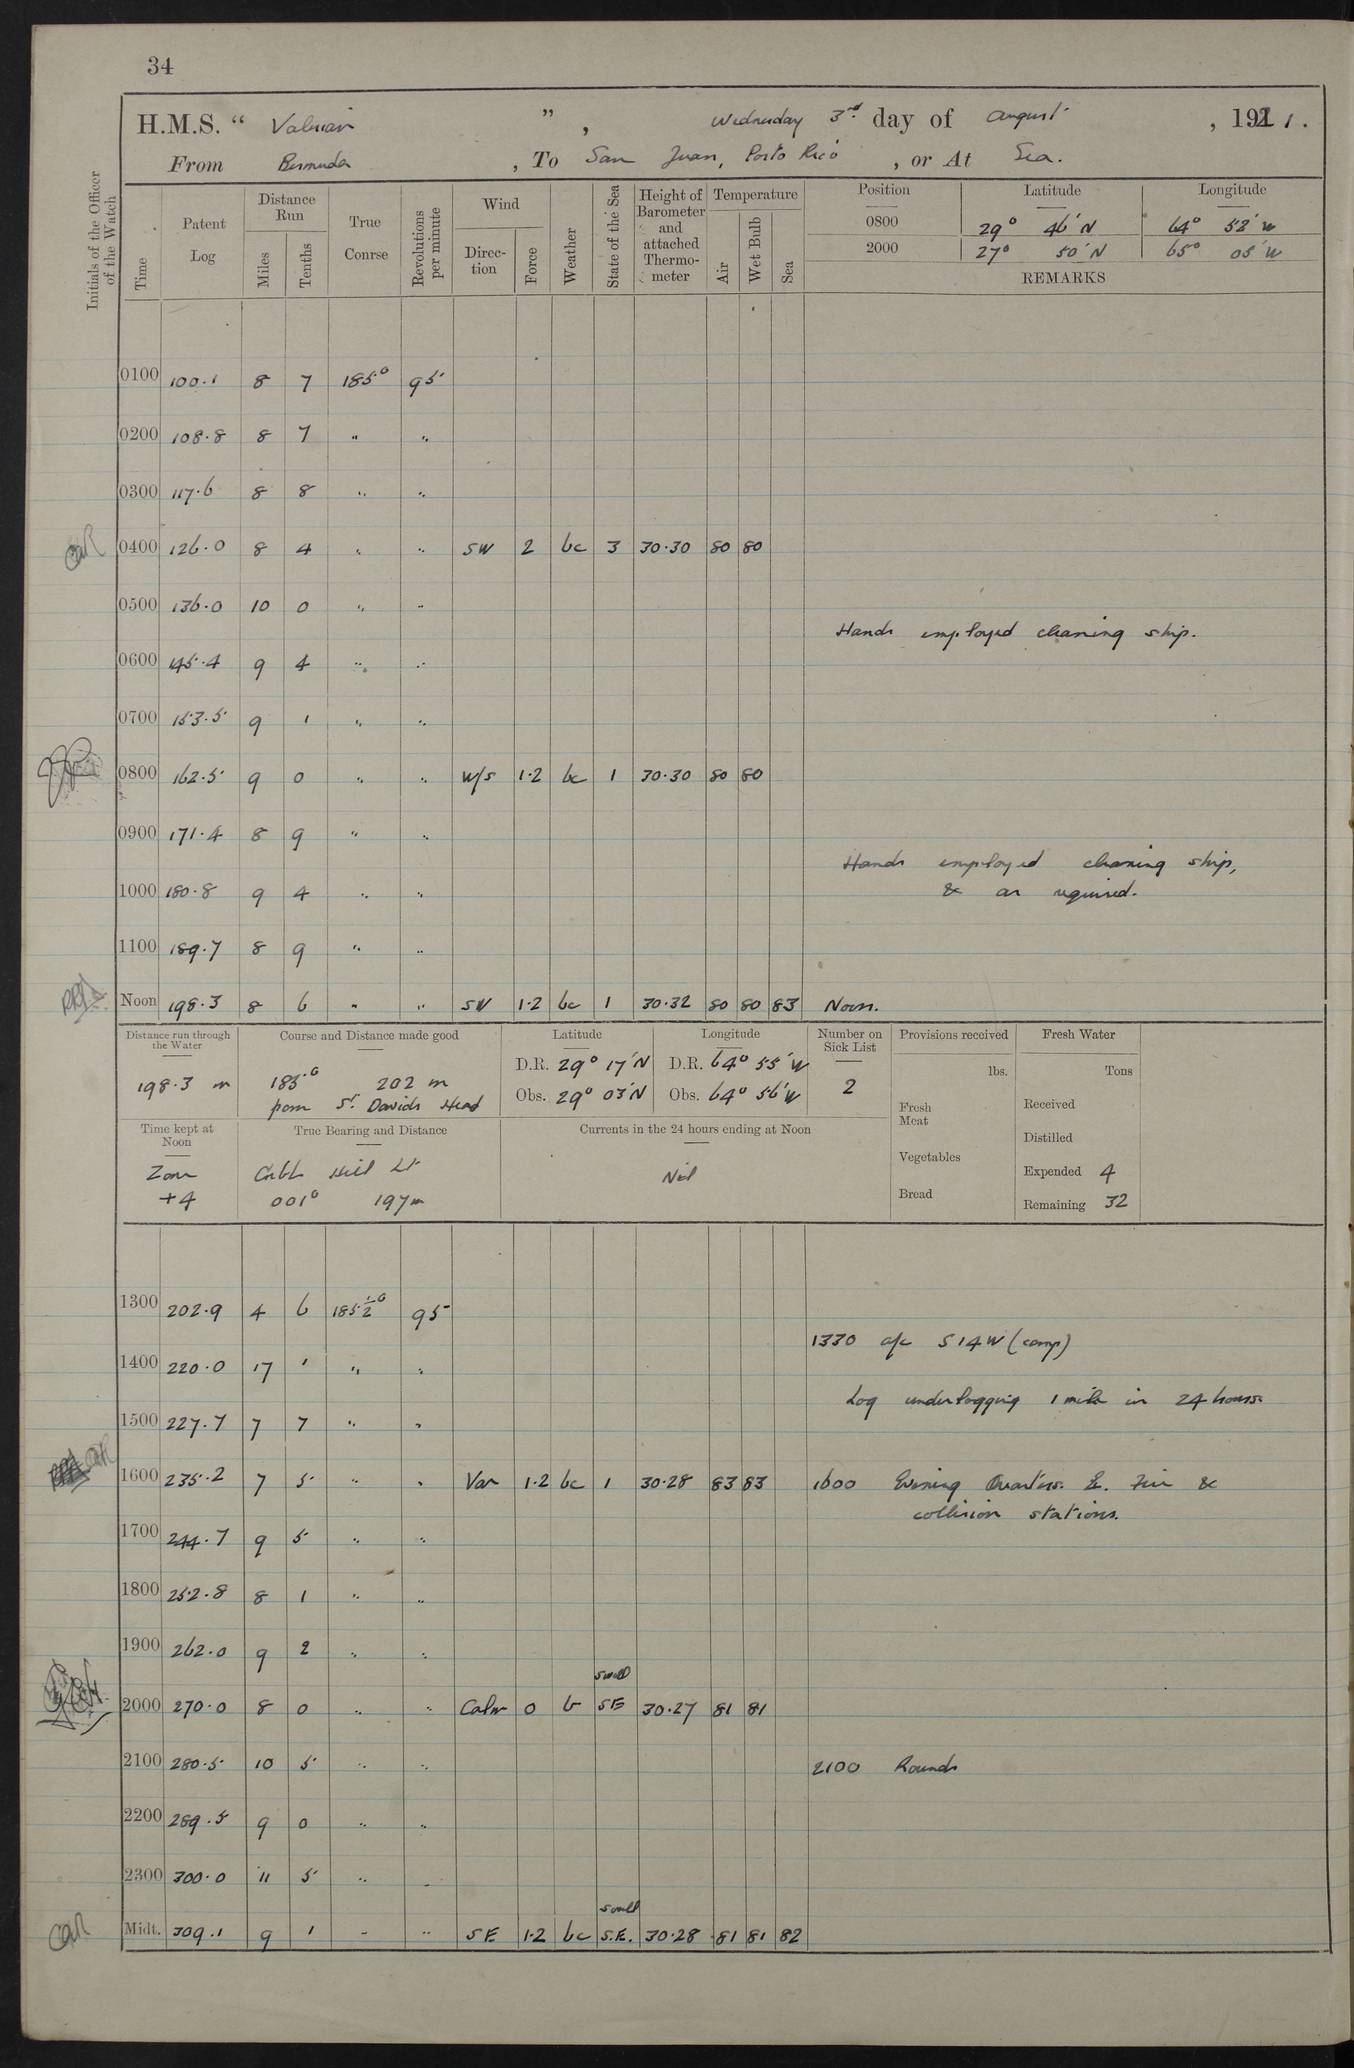 34
H.M.S. “ Valerian ” , Wednesday 3rd day of August , 1921.
From Bermuda , To San Juan, Porto Rico , or At Sea.
Initials of the Officer of the Watch
Time Patent Log Distance Run Miles Tenths True Course Revolutions per minute Wind Direction Force Weather State of the Sea Height of Barometer and attached Thermometer Temperature Air Wet Bulb Sea Position Latitude Longitude
0800 29° 46' N 64° 52' W
2000 27° 50' N 65° 05' W
REMARKS
0100 100.1 8 7 185° 95
0200 108.8 8 7 " "
0300 117.6 8 8 " "
0400 126.0 8 4 " " SW 2 bc 3 30.30 80 80
0500 136.0 10 0 " "
Hands employed cleaning ship.
0600 145.4 9 4 " "
0700 153.5 9 1 " "
0800 162.5 9 0 " " W/S 1.2 bc 1 30.30 80 80
0900 171.4 8 9 " "
Hands employed cleaning ship,
1000 180.8 9 4 " " & as required.
1100 189.7 8 9 " "
Noon 198.3 8 6 " " SW 1.2 bc 1 30.32 80 80 83 Noon.
Distance run through the Water Course and Distance made good Latitude Longitude Number on Sick List Provisions received Fresh Water
198.3 m 185° 202 m D.R. 29° 17' N D.R. 64° 55' W 2 lbs. Tons
from St. Davids Head Obs. 29° 03' N Obs. 64° 56' W
Fresh Meat Received
Time kept at Noon True Bearing and Distance Currents in the 24 hours ending at Noon
Distilled
Zone Gibbs Hill Lt Nil Vegetables Expended 4
+4 001° 197m Bread Remaining 32
1300 202.9 4 6 185½° 95
1330 a/c S14W (comp)
1400 220.0 17 1 " "
Log underlogging 1 mile in 24 hours.
1500 227.7 7 7 " "
1600 235.2 7 5 " " Var 1.2 bc 1 30.28 83 83 1600 Evening Quarters. Ex. Fire &
collision stations.
1700 244.7 9 5 " "
1800 252.8 8 1 " "
1900 262.0 9 2 " "
swell
2000 270.0 8 0 " " Calm 0 b SE 30.27 81 81
2100 280.5 10 5 " " 2100 Rounds
2200 289.5 9 0 " "
2300 300.0 11 5 " "
swell
Midt. 309.1 9 1 " " SE 1.2 bc S.E. 30.28 81 81 82